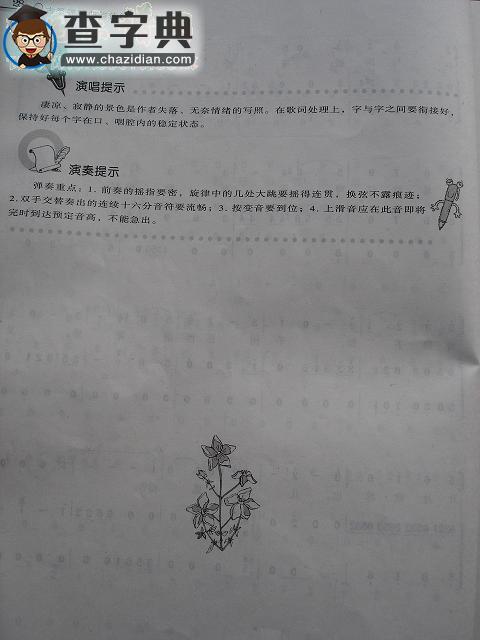 查字典
www.chazidian.com
演唱提示
凄凉、寂静的景色是作者失落、无奈情绪的写照。在歌词处理上，字与字之间要衔接好，
保持好每个字在口、咽腔内的稳定状态。
演奏提示
弹奏重点：1. 前奏的摇指要密，旋律中的几处大跳要摇得连贯，换弦不露痕迹；
2. 双手交替奏出的连续十六分音符要流畅；3. 按变音要到位；4. 上滑音应在此音即将
完时到达预定音高，不能急出。